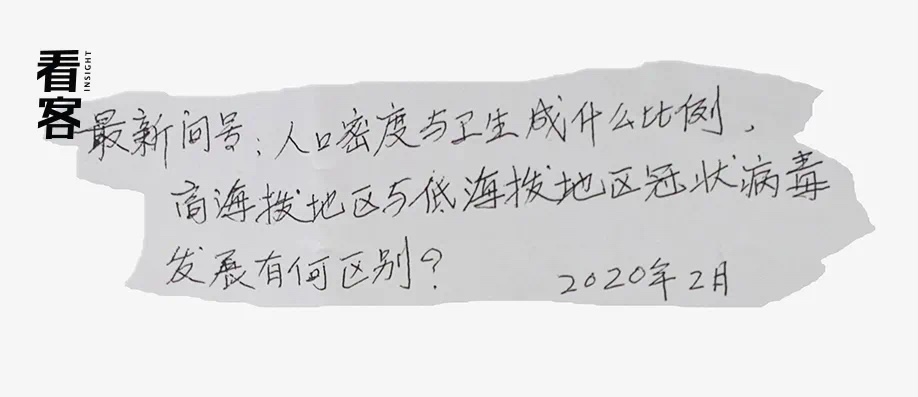 看客
INSIGHT
最新问号：人口密度与卫生成什么比例，
高海拨地区与低海拨地区冠状病毒
发展有何区别？
2020年2月